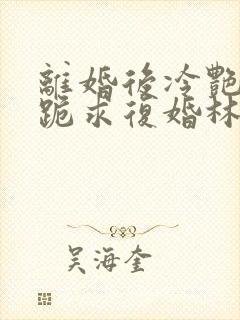 離婚後冷艷
跪求復婚林
吳海奎